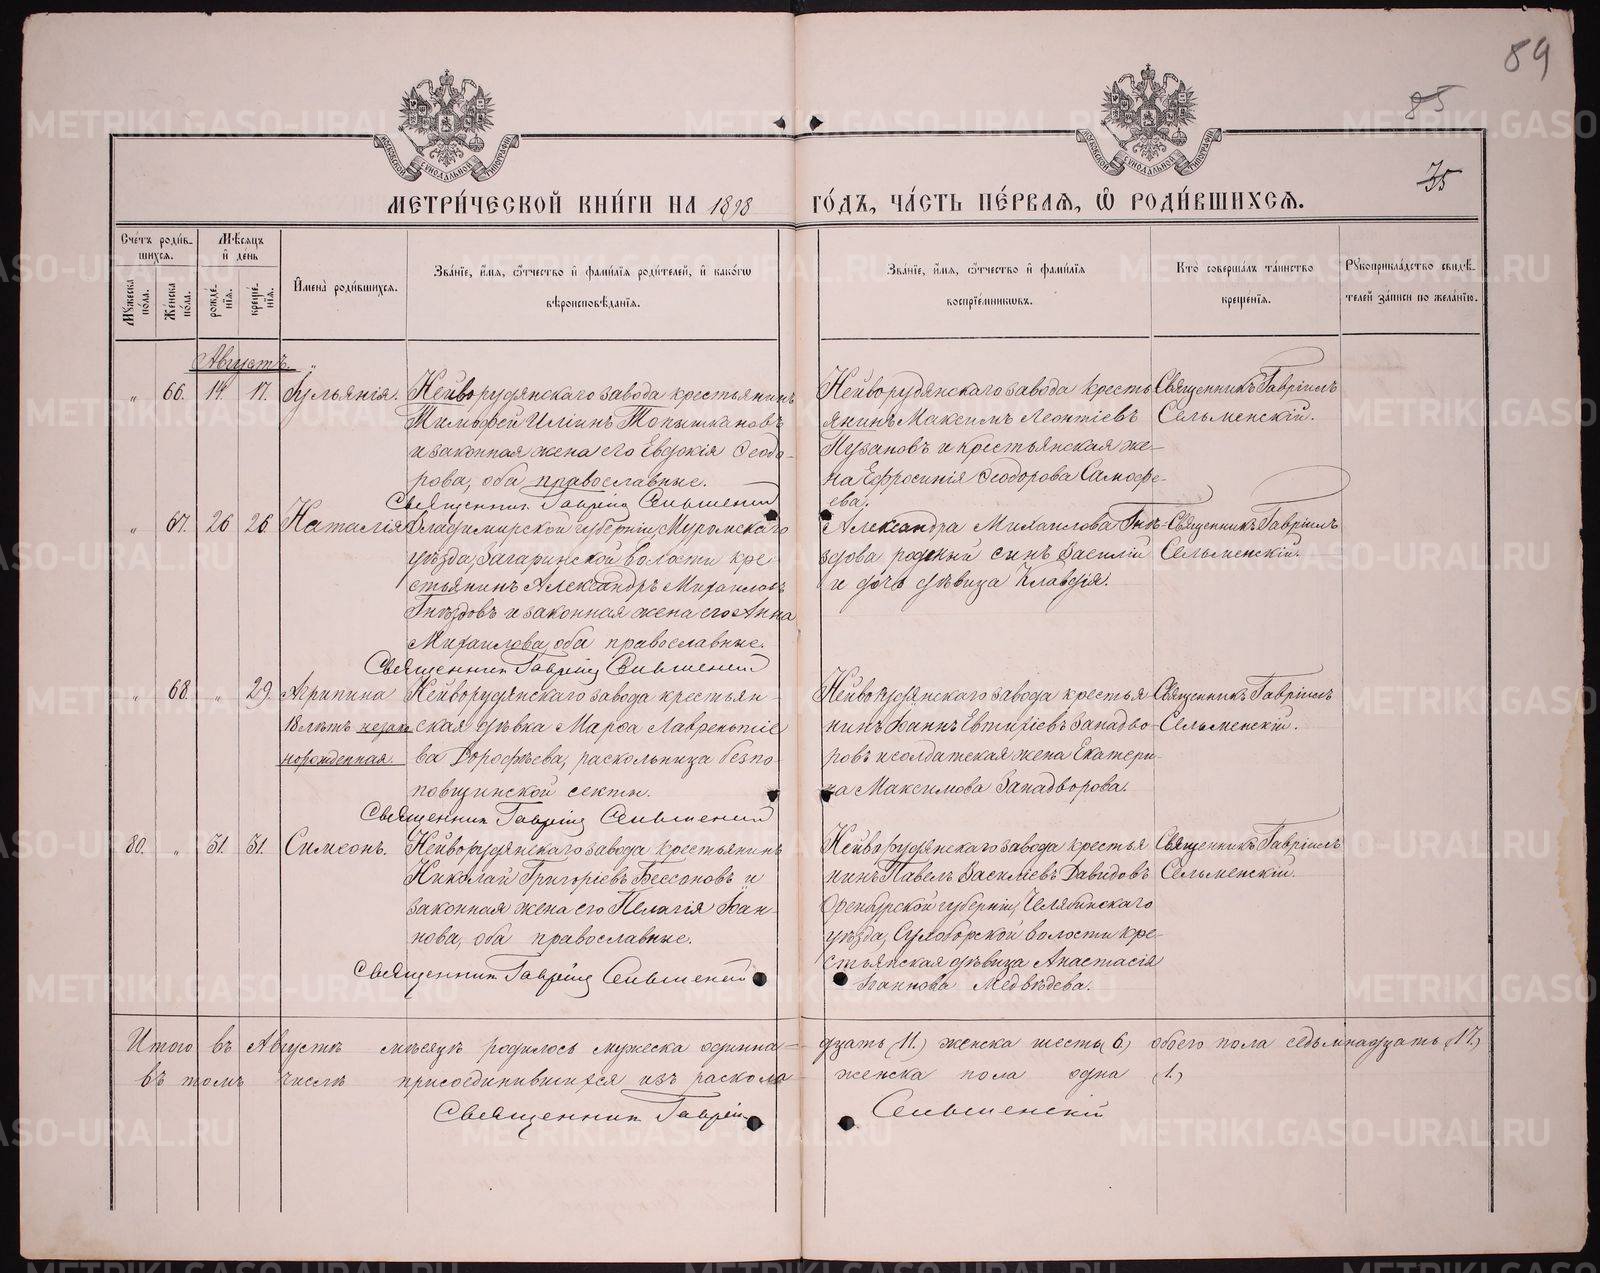 89
85
35
МЕТРИ́ЧЕСКОЙ КНИ́ГИ НА 1898 ГО́ДЪ, ЧА́СТЬ ПЕ́РВАЯ, Ѿ РОДИ́ВШИХСЯ.
Сче́тъ роди́в-
шихся.
Мꙋжеска по́ла.
Же́нска по́ла.
Мѣ́сяцъ
и҆ де́нь
рожде́-
нїѧ.
креще́-
нїѧ.
И҆мена̀ роди́вшихсѧ.
Зва́нїе, и҆́мѧ, ѻ҆́тчество и҆ фами́лїѧ роди́телей, и҆ како́гѡ
вѣроисповѣ́данїѧ.
Зва́нїе, и҆́мѧ, ѻ҆́тчество и҆ фами́лїѧ
воспрїе́мникѡвъ.
Кто̀ соверша́лъ та́инство
креще́нїѧ.
Рꙋкоприкла́дство свидѣ́-
телей за́писи по жела́нїю.
Августъ.
„ 66. 14. 17. Іульянія. Нейворудянскаго завода крестьянинъ
Тимофей Илiинъ Топышкановъ
и законная жена его Евдокія Ѳеодо-
рова, оба православные.
Священник Гавріил Сельменский
Нейворудянскаго завода кресть
янинъ Максимъ Леонтіевъ
Пузановъ и крестьянская же-
на Ефросинія Ѳеодорова Самофе-
ева.
Священникъ Гавріилъ
Сельменскій.
„ 67. 26 26. Наталія Владимирской губерніи, Муромскаго
уѣзда, Загаринской волости кре-
стьянинъ Александръ Михаиловъ
Гнѣздовъ и законная жена его Анна
Михаилова, оба православные.
Священник Гавріил Сельменский
Александра Михаилова Гнѣ-
здова родный сынъ Василій
и дочь дѣвица Клавдія.
Священникъ Гавріилъ
Сельменскій.
„ 68. „ 29. Агрипина
18 лѣтъ незак
норожденная.
Нейворудянскаго завода крестьян-
ская дѣвка Марѳа Лаврентіе
ва Дороѳѣева, раскольница безпо-
повщинской секты.
Священник Гавріил Сельменский
Нейворудянскаго завода крестья
нинъ Іоаннъ Евтихіевъ Западво-
ровъ и солдатская жена Екатери-
на Максимова Западворова.
Священникъ Гавріилъ
Сельменскій.
80. „ 31. 31. Симеонъ. Нейворудянскаго завода крестьянинъ
Николай Григоріевъ Бессоновъ и
законная жена его Пелагія Іоан-
нова, оба православные.
Священник Гавріил Сельменский
Нейворудянскаго завода крестья
нинъ Павелъ Василіевъ Давидовъ
Оренбурской губерніи, Челябинскаго
уѣзда, Сухоборской волости кре-
стьянская дѣвица Анастасія
Іоаннова Медвѣдева.
Священникъ Гавріилъ
Сельменскій.
Итого въ Августѣ мѣсяцѣ родилось мужеска одинна-дцать (11.) женска шесть (6.) обоего пола седьмнадцать (17.)
въ томъ числѣ присоединившихся изъ раскола женска пола одна (1.)
Священник Гавріил Сельменскій
METRIKI.GASO-URAL.RU